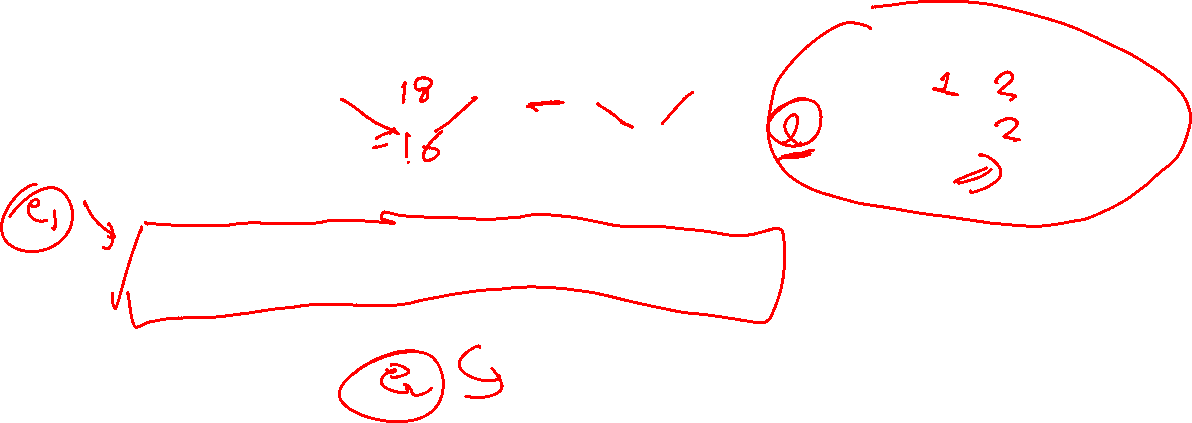 18
1 2
16
2
e1
e2